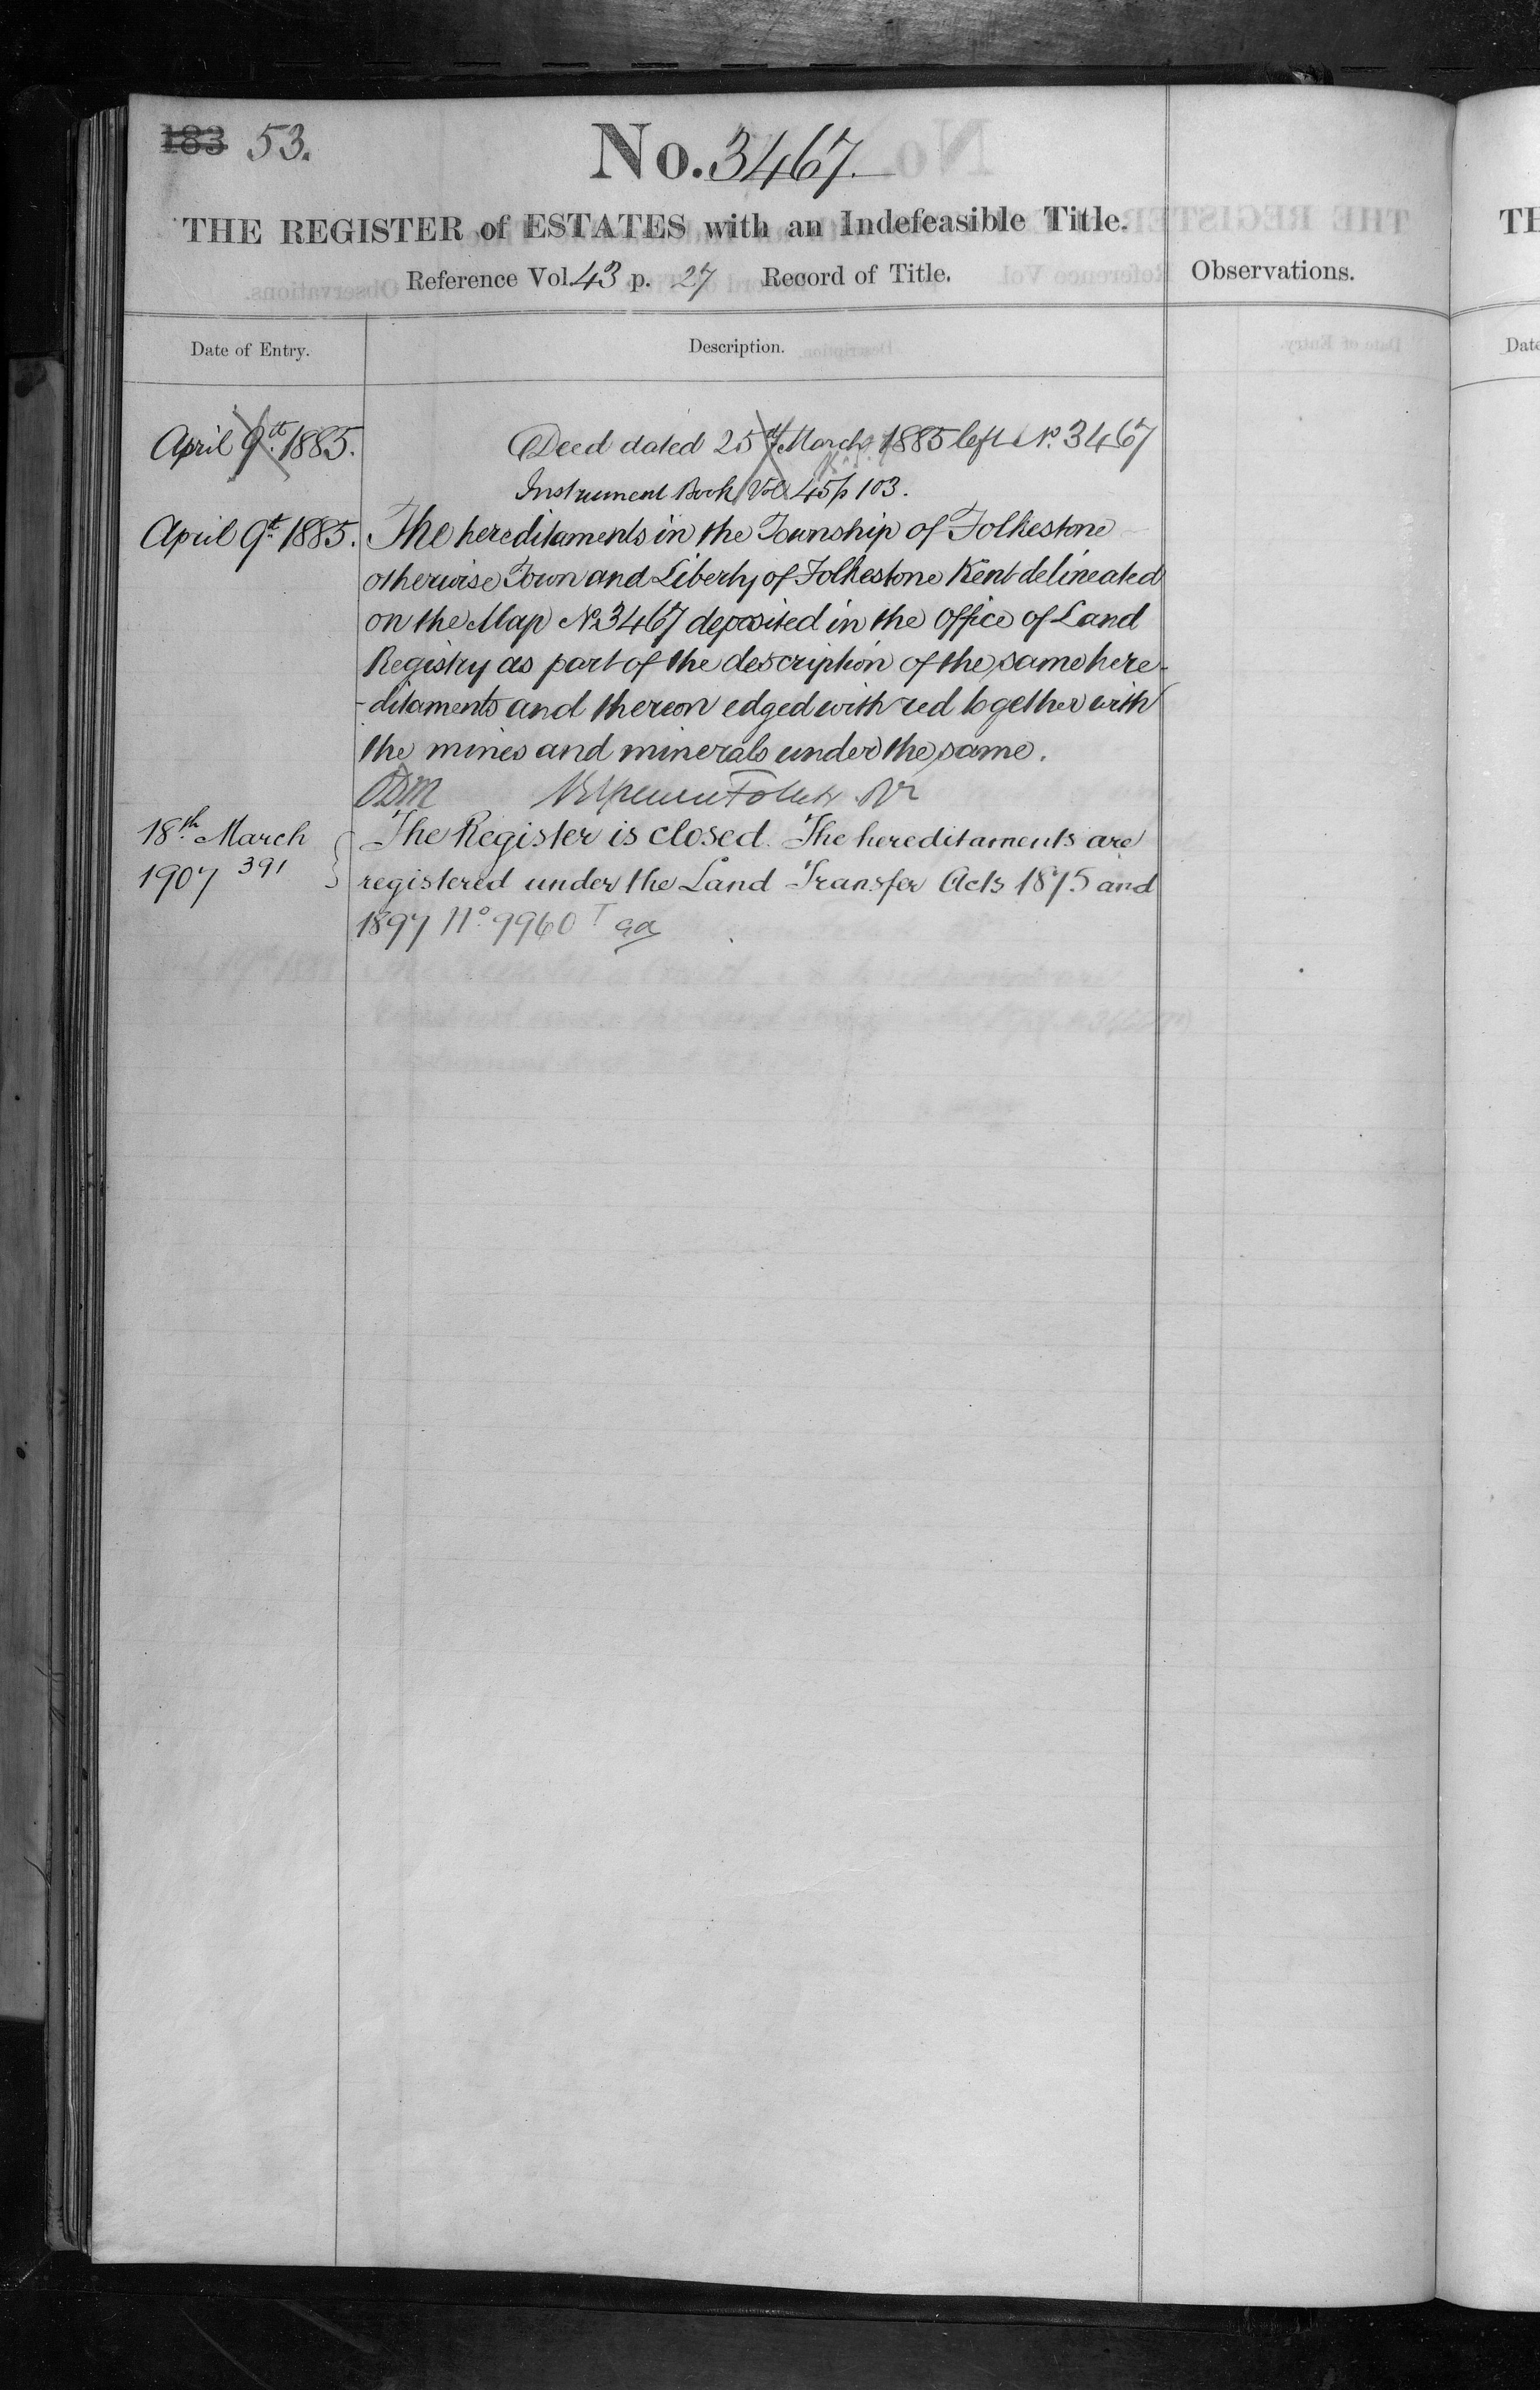 183 53.
No. 3467.
THE REGISTER of ESTATES with an Indefeasible Title.
Reference Vol. 43 p. 27 Record of Title.
Observations.
Date of Entry.
Description.
April 9th. 1885.
Deed dated 25th March 1885 left No. 3467
Instrument Book Vol 45 p 103.
April 9th 1885.
The hereditaments in the Township of Folkestone
otherwise Town and Liberty of Folkestone Kent delineated
on the Map No. 3467 deposited in the Office of Land
Registry as part of the description of the same here-
-ditaments and thereon edged with red together with
the mines and minerals under the same.
18th March
1907 391
The Register is closed. The hereditaments are
registered under the Land Transfer Acts 1875 and
1897 No. 9960
TH
Date